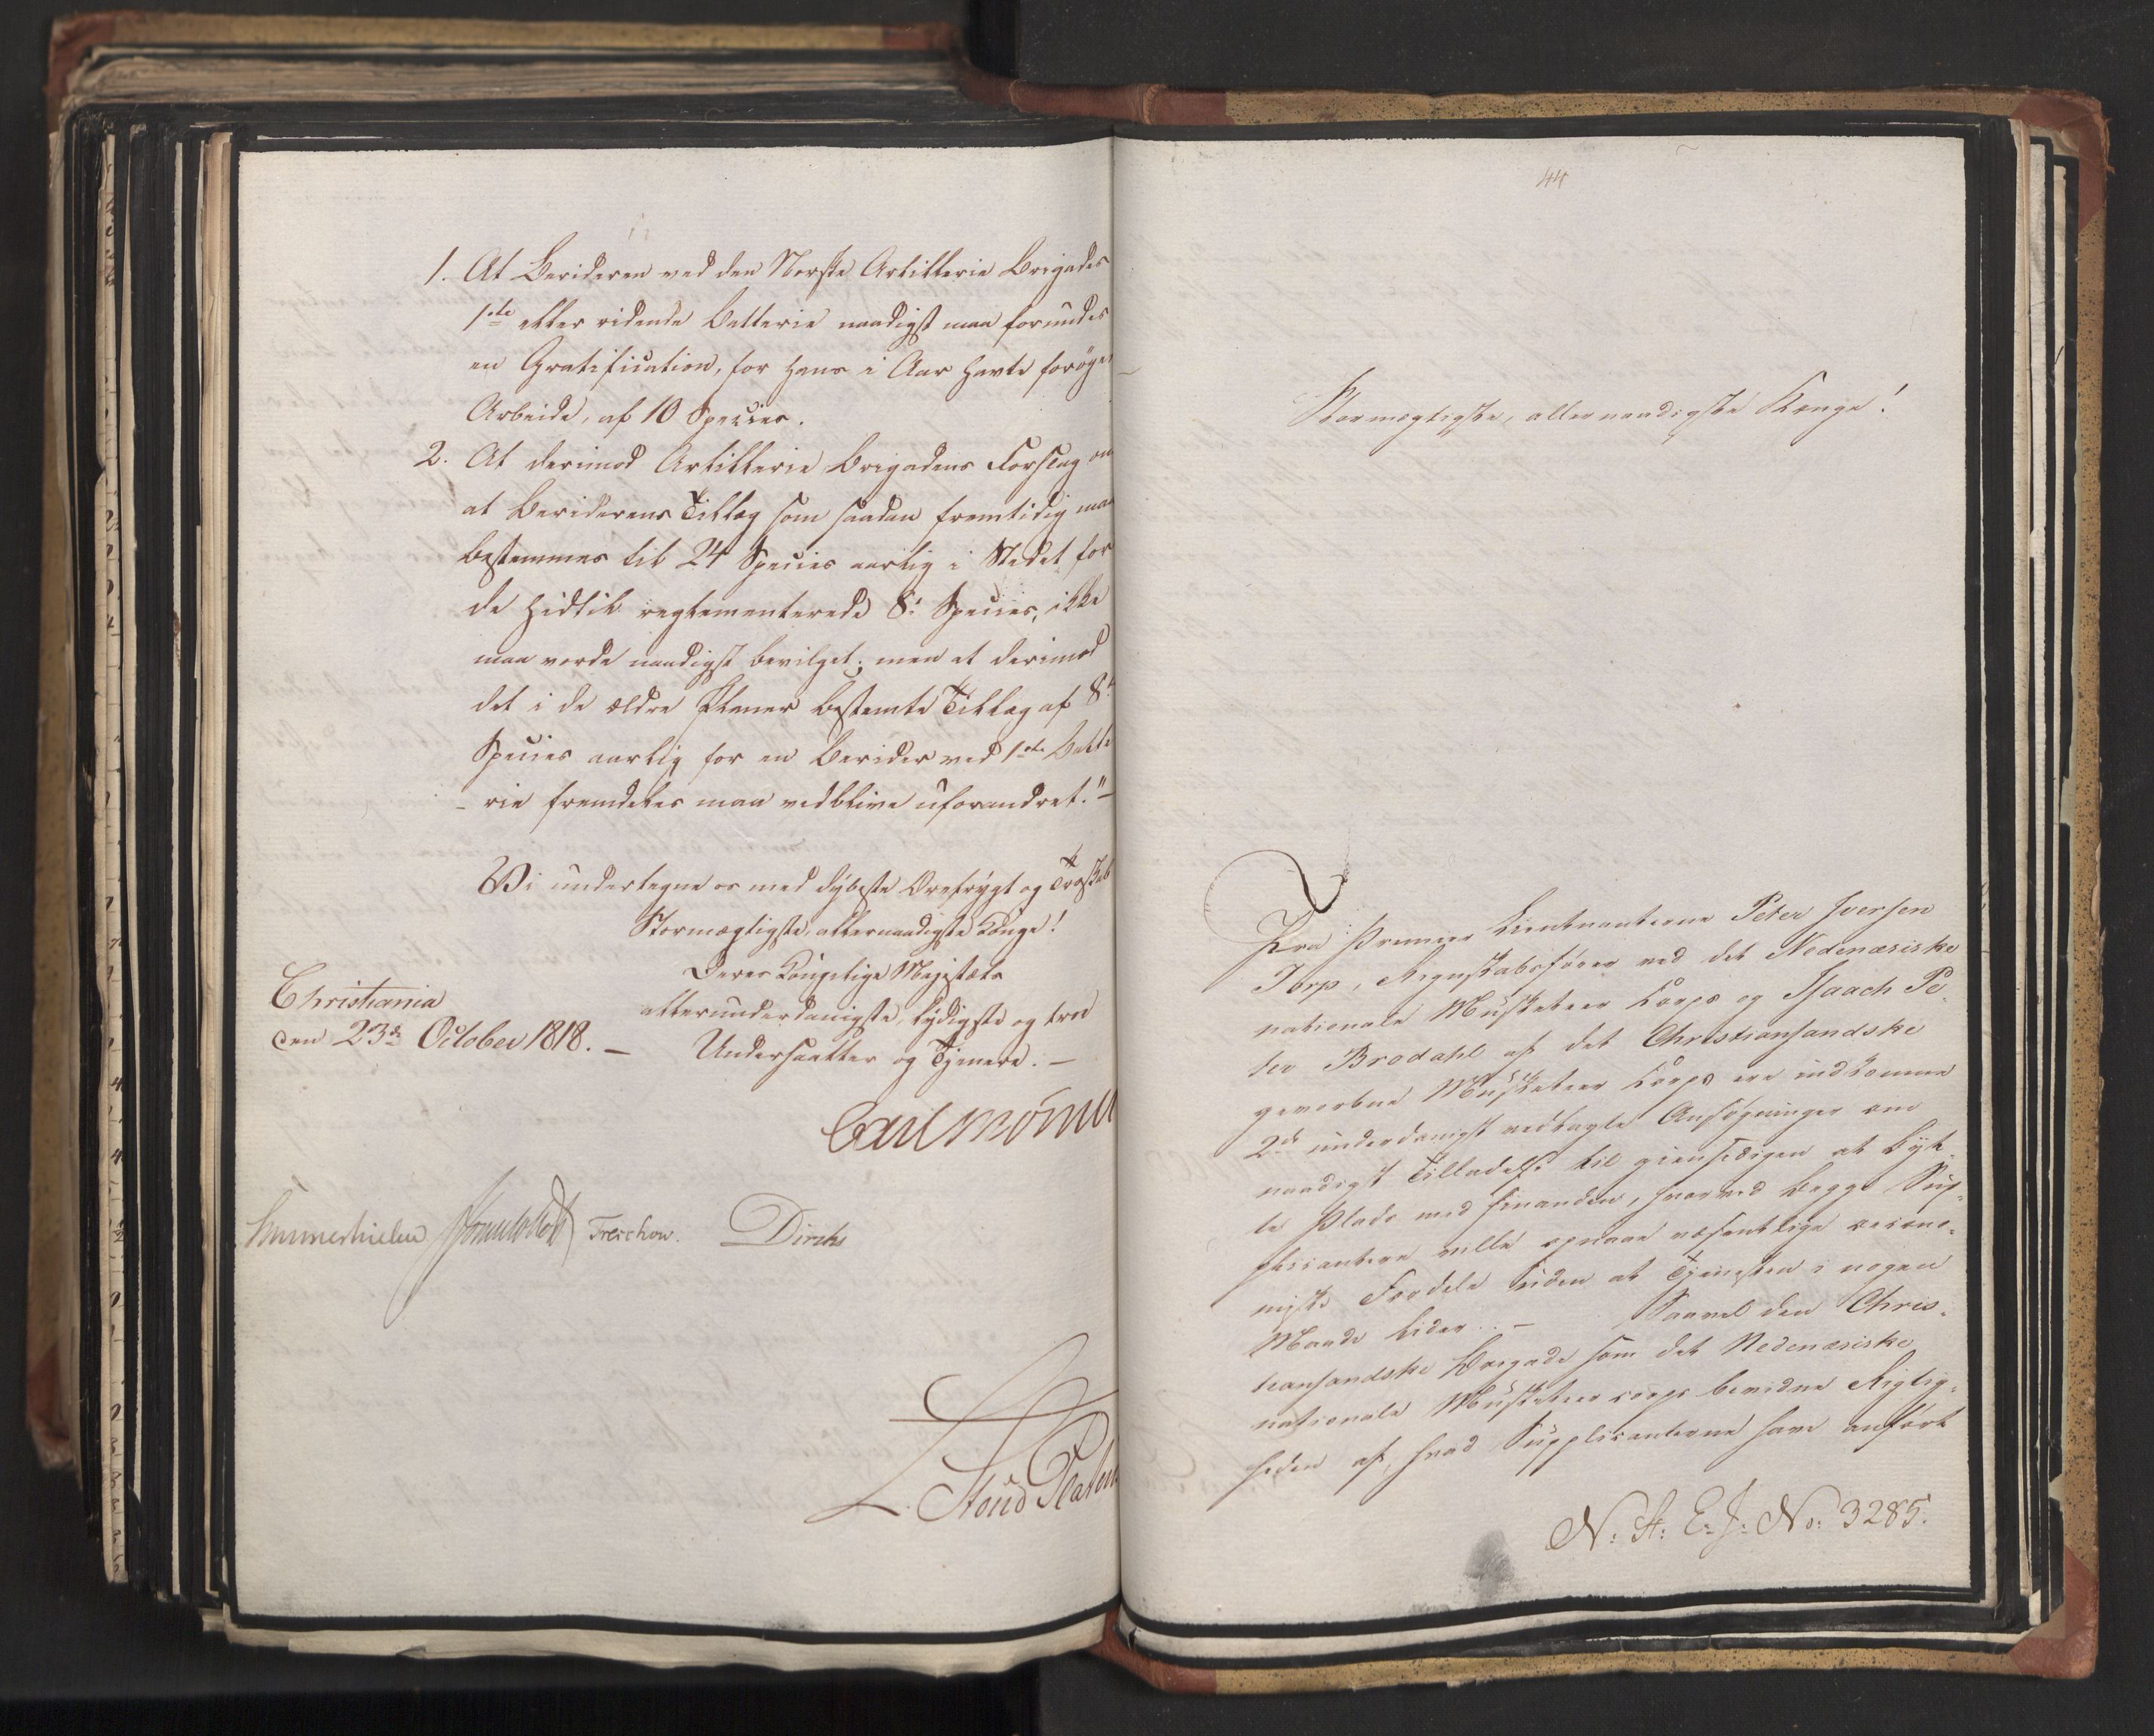 1. At Berideren ved den Norske Artillerie Brigades
1ste eller ridende Batterie naadigst maa forundes
en Gratification, for hans i Aar havte forøgede
Arbeide, af 10 Species.
2. At derimod Artillerie Brigadens Forslag om
at Beriderens Tillæg som saadan fremtidig maa
bestemmes til 24 Species aarlig i Stedet for
de hidtil reglementerede 8: Species, ikke
maa vorde naadigst bevilget; men at derimod
det i de ældre Planer bestemte Tillæg af 8:
Species aarlig for en Berider ved 1ste Batte
-rie fremdeles maa vedblive uforandret."-
Vi undertegne os med dybeste Ærefrygt og Troskab
Stormægtigste, allernaadigste Konge!
Deres Kongelige Majestæts
allerunderdanigste, lydigste og troe
Undersaatter og Tjenere. -
Christiania
den 23de October 1818. -
Carl Mörner
Sommerhielm Treschow. Diriks
44
Stormægtigste, allernaadigste Konge!
Fra Premier Lieutnanterne Peter Iversen
Torp, Regnskabsfører ved det Nedenæsiske
nationale Musketeer Corps og Isaach Pe-
ter Brodahl af det Christiansandske
gevorbne Musketeer Corps ere indkomne
2de underdanigst vedlagte Ansøgninger om
naadigst Tilladelse til giensidigen at byt-
te Plads med hinanden, hvorved begge Sup-
plicantere ville opnaae væsentlige oecono-
miske Fordele uden at Tjenesten i nogen
Maade lider. - Saavel den Chris-
tiansandske Brigade som det Nedenæsiske
nationale Musketeercorps bevidne Rigtig-
heden af, hvad Supplicanterne have anført
N: A: E: J: No: 3285.